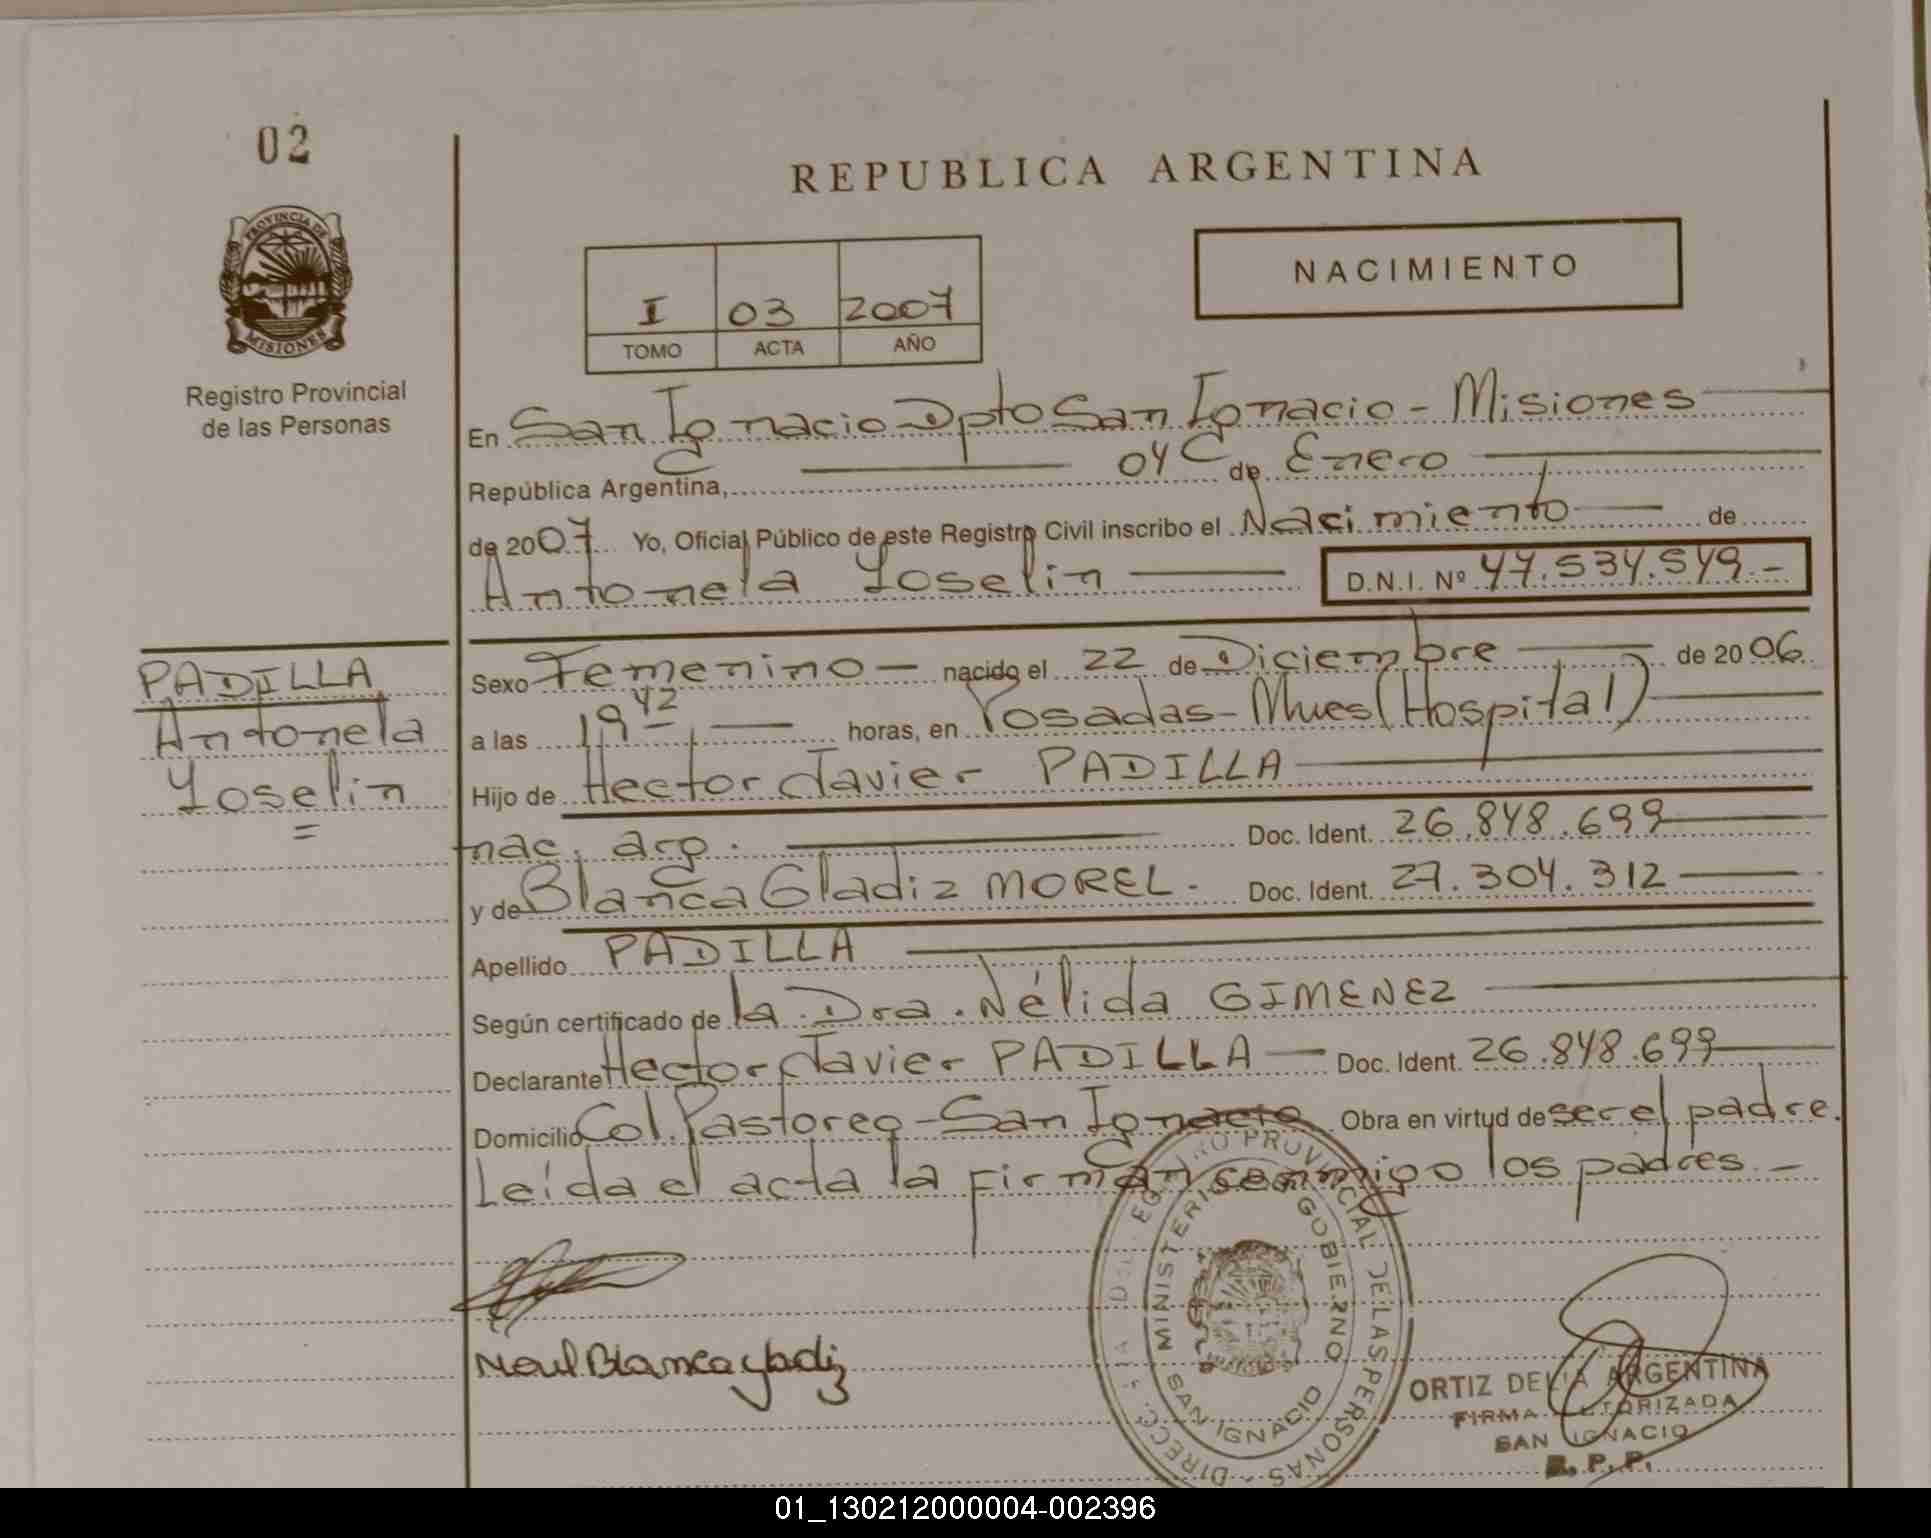 02
REPUBLICA ARGENTINA
PROVINCIA DE
MISIONES
NACIMIENTO
I 03 2007
TOMO ACTA AÑO
Registro Provincial
de las Personas
En San Ignacio Dpto San Ignacio - Misiones
República Argentina, 04 de Enero
de 2007 Yo, Oficial Público de este Registro Civil inscribo el Nacimiento de
Antonela Yoselin D.N.I. Nº 47.534.549.-
PADILLA
Antonela
Yoselin
=
Sexo Femenino - nacido el 22 de Diciembre de 2006
a las 19 42 horas, en Posadas - Mnes (Hospital)
Hijo de Hector Javier PADILLA
nac. arg. Doc. Ident. 26.848.699
y de Blanca Gladiz MOREL. Doc. Ident. 27.304.312
Apellido PADILLA
Según certificado de la Dra. Nélida GIMENEZ
Declarante Hector Javier PADILLA - Doc. Ident. 26.848.699
Domicilio Col. Pastoreo - San Ignacio Obra en virtud de ser el padre.
Leída el acta la firman conmigo los padres. -
Blanca gladiz
PROVINCIAL DE LAS PERSONAS - DIRECC
MINISTERIO GOBIERNO
SAN IGNACIO
ORTIZ ARGENTINA
FIRMA AUTORIZADA
SAN IGNACIO
R. P. P.
01_130212000004-002396